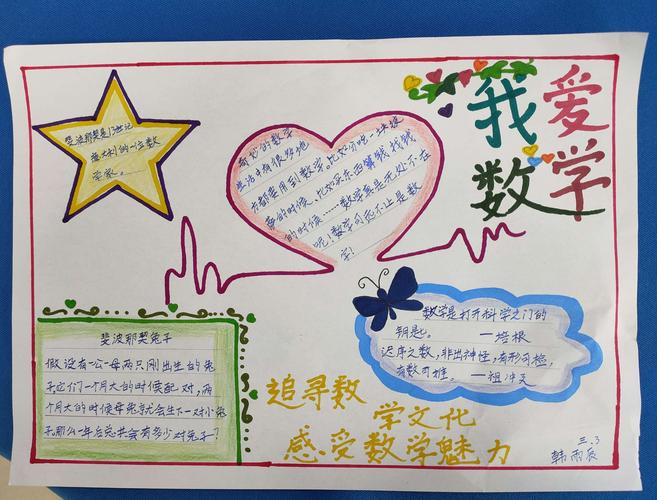 我爱
数学
斐波那契是13世纪
意大利的一位数
学家。
奇妙的数学
生活中有很多地
方都要用到数学。比如分吃一块蛋
糕的时候、比如买东西算钱找钱
的时候……数学真是无处不在
呢！数学可玩不止是数
字！
斐波那契兔子
假设有一公一母两只刚出生的兔
子,它们一个月大的时候配对,两
个月大的时候母兔就会生下一对小兔
子,那么一年后总共会有多少对兔子?
数学是打开科学之门的
钥匙。 —培根
迟序之数,非出神怪,有形可检,
有数可推。 —祖冲天
追寻数
学文化
感受数学魅力
三.3
韩雨辰